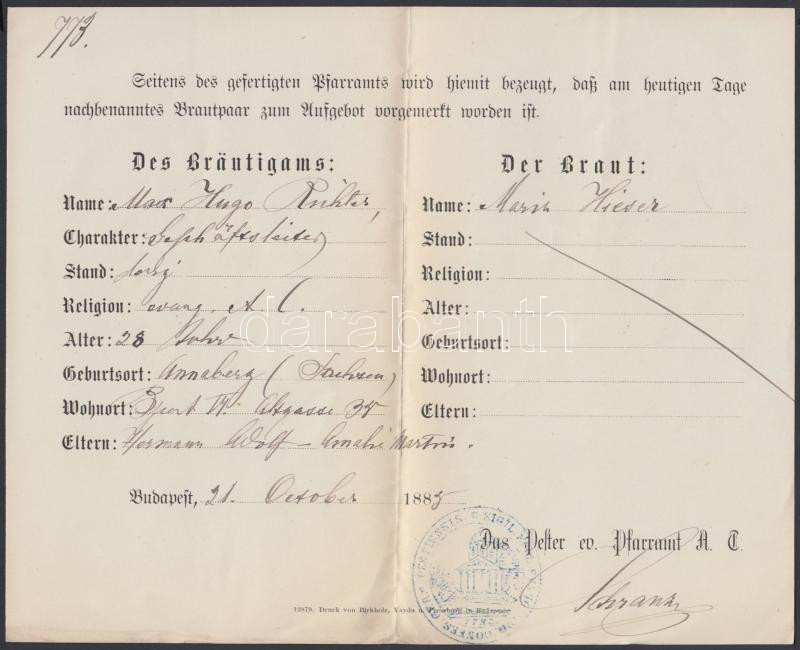 773.
Seitens des gefertigten Pfarramts wird hiemit bezeugt, daß am heutigen Tage
nachbenanntes Brautpaar zum Aufgebot vorgemerkt worden ist.
Des Bräutigams:
Name: Max Hugo Richter,
Charakter: Geschäftsleiter
Stand: ledig
Religion: evang. A. C.
Alter: 28 Jahre
Geburtsort: Annaberg (Sachsen)
Wohnort: Bpest VI. Altgasse 35
Eltern: Hermann Adolf – Amalie
Der Braut:
Name: Maria Hieser
Stand:
Religion:
Alter:
Geburtsort:
Wohnort:
Eltern:
Budapest, 21. October 1885
Das Pester ev. Pfarramt A. C.
Schranz
darabanth
13879. Druck von Birkholz, Vajda u. Pressburg in Budapest